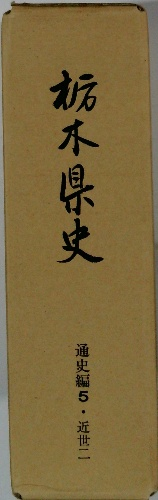 栃木県史
通史編5・近世二